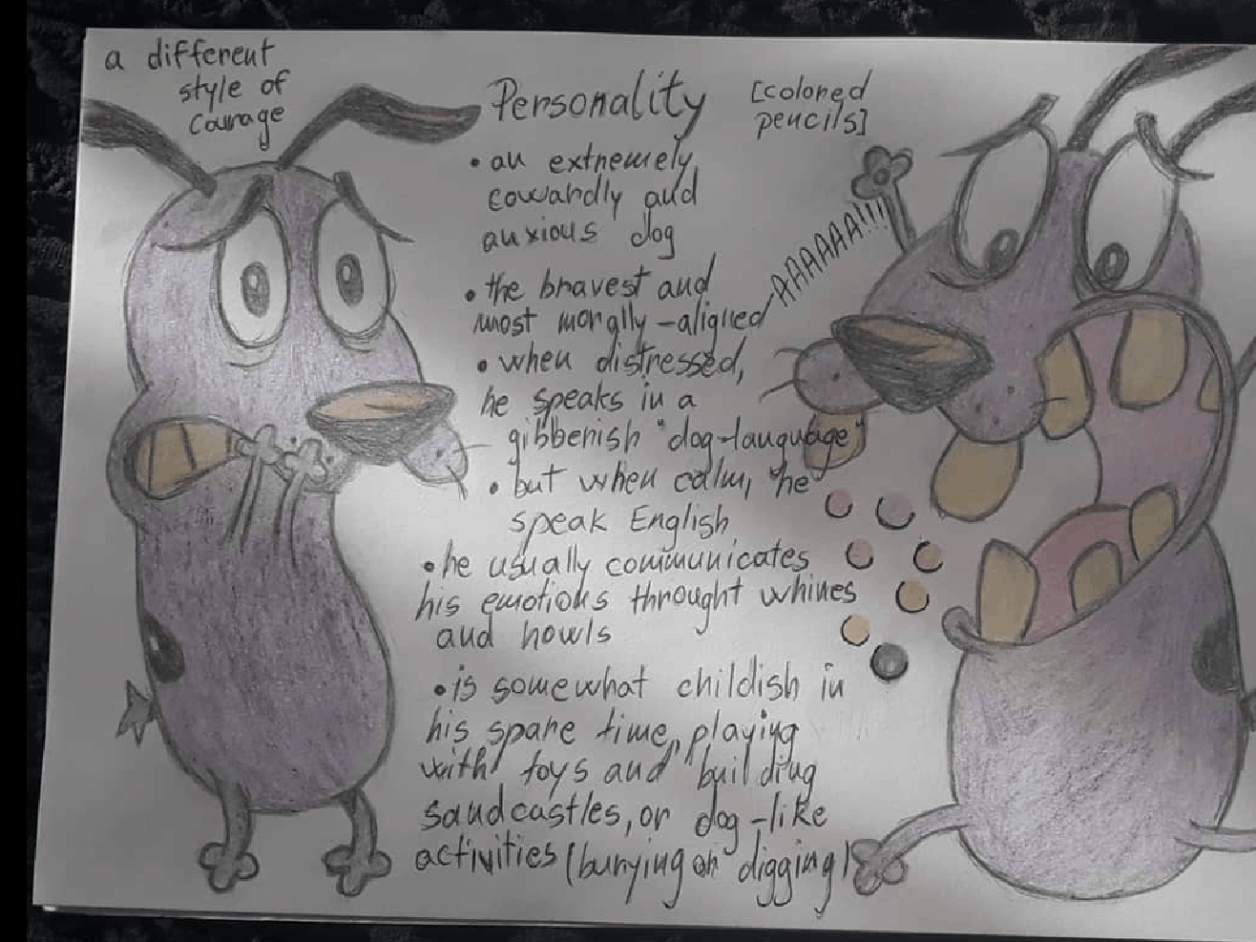 a different
style of
Courage
Personality
[colored
pencils]
• an extremely
cowardly and
anxious dog
• the bravest and
most morally-aligned
AAAAAAA!!!
• when distressed,
he speaks in a
gibberish "dog-language"
• but when calm, he
speak English
• he usually communicates
his emotions throught whines
and howls
• is somewhat childish in
his spare time, playing
with toys and building
sandcastles, or dog-like
activities (burying or digging)